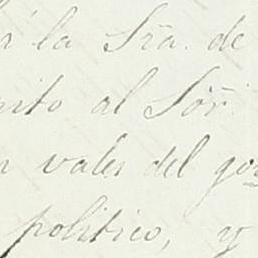 la Sra. de
al Sor.
vales del
politico, y